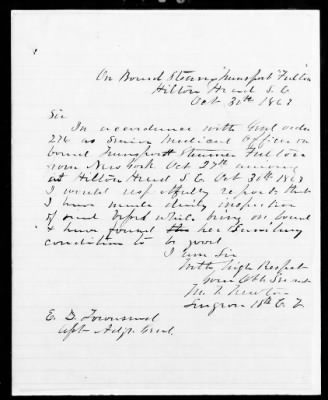 On Board Steam Transport Fulton
Hilton Head S. C.
Oct 30th 1863
Sir
In accordance with Genl order
276 as Senior Medical Officer on
board Transport Steamer Fulton
from New York Oct 27th
at Hilton Head S. C. Oct 30th 1863
I would respectfully report that
I have made daily inspection
of while being on board
& have found her Sanitary
condition to be good
I am Sir
With high Respect
Your Obt Servt
M. T. Newton
Surgeon 10th C. V.
E. D. Townsend
Asst Adjt Genl